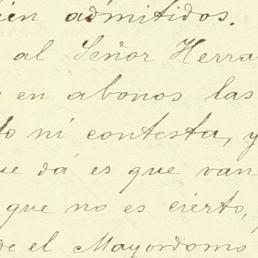 ien admitidos.
al Señor Herra
en abonos las
to ni contesta, y
ue dá es que van
que no es cierto,
de el Mayordomo